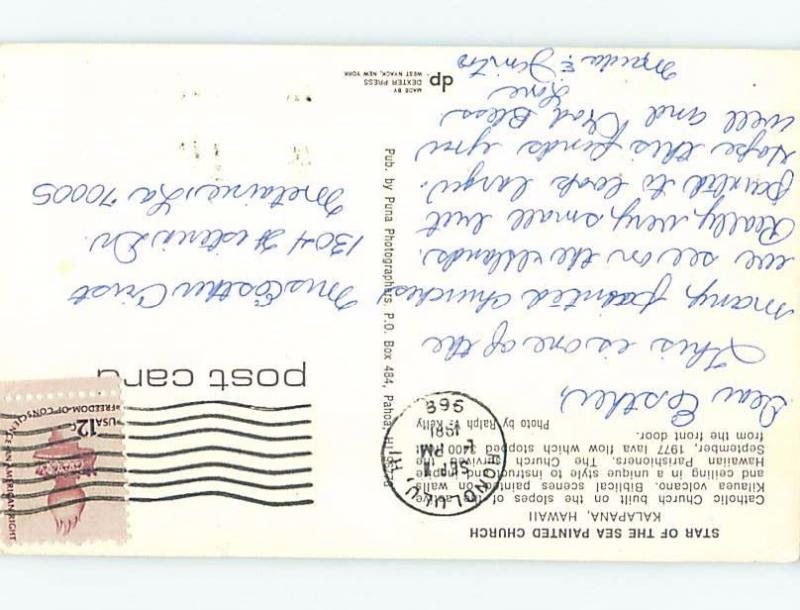 STAR OF THE SEA PAINTED CHURCH
KALAPANA, HAWAII
Catholic Church built on the slopes of the active
Kilauea volcano. Biblical scenes painted on walls
and ceiling in a unique style to instruct
Hawaiian Parishioners. The Church survived the
September, 1977 lava flow which stopped 3400
from the front door.
Photo by Ralph V. Kelty
Dear Esther,
This is one of the
many painted churches
we see on the Islands.
Really very, very small but
painted to look large.
Hope this finds you
well and God Bless
Love
dp
MADE BY
DEXTER PRESS
WEST NYACK, NEW YORK
Pub. by Puna Photographers, P.O. Box 484, Pahoa, HI
HONOLULU, HI
SEP
PM
1981
968
post card
USA 12c
FREEDOM OF CONSCIENCE-AN AMERICAN RIGHT
Mrs Esther Crist
1304 Dr.
Metairie, La 70005